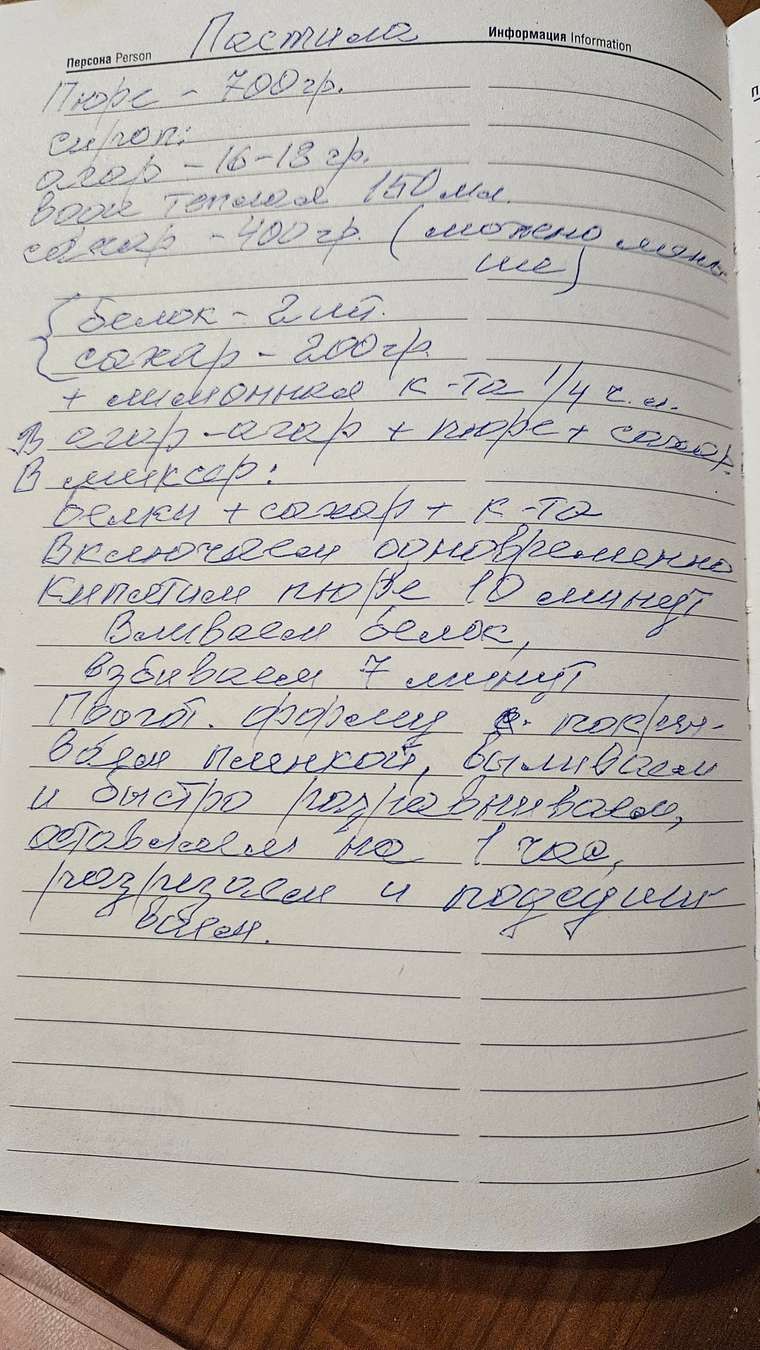 Пастила
Персона Person
Информация Information
Пюре - 700 гр.
сироп:
агар - 16-18 гр.
вода теплая 150 мл.
сахар - 400 гр. (можно мень
ше)
{ белок - 2 шт.
{ сахар - 200 гр.
+ лимонная к-та 1/4 ч.л.
В агар-агар + пюре + сахар.
В миксер:
белки + сахар + к-та
Включаем одновременно
Кипятим пюре 10 минут
Вливаем белок,
взбиваем 7 минут
Пригот. форму покры-
ваем пленкой, выливаем
и быстро разравниваем,
оставляем на 1 час,
разрезаем и подсуши-
ваем.